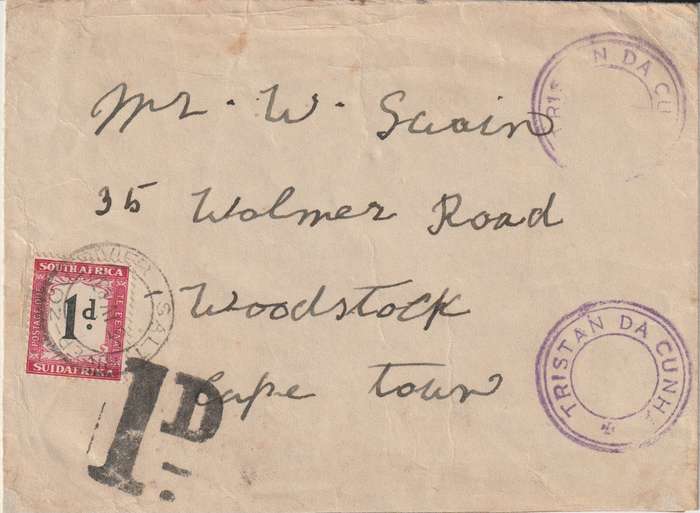 TRISTAN DA CU
Mr. W. Swain
35 Wolmer Road
Woodstock
Cape Town
SOUTH AFRICA
POSTAGE DUE
TE BETAAL
1d.
SUIDAFRIKA
SALT
1D.
TRISTAN DA CUNHA